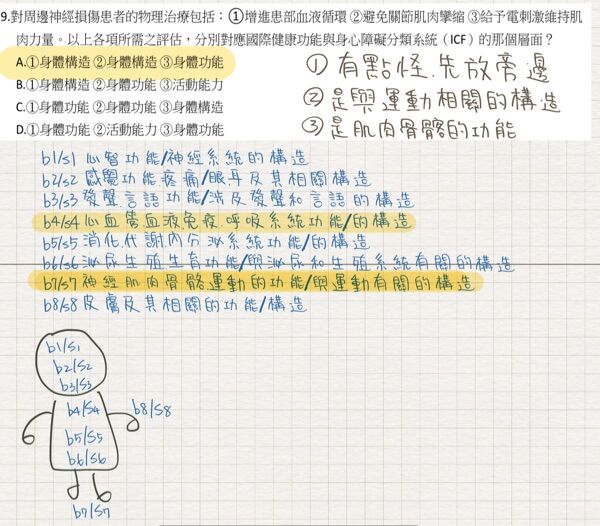 9.對周邊神經損傷患者的物理治療包括：①增進患部血液循環 ②避免關節肌肉攣縮 ③給予電刺激維持肌
肉力量。以上各項所需之評估，分別對應國際健康功能與身心障礙分類系統（ICF）的那個層面？
A.①身體構造 ②身體構造 ③身體功能
B.①身體構造 ②身體功能 ③活動能力
C.①身體功能 ②身體功能 ③身體構造
D.①身體功能 ②活動能力 ③身體功能
① 有點怪.先放旁邊
② 是與運動相關的構造
③ 是肌肉骨骼的功能
b1/s1 心智功能/神經系統的構造
b2/s2 感覺功能疼痛/眼耳及其相關構造
b3/s3 發聲.言語功能/涉及發聲和言語的構造
b4/s4 心血管血液免疫.呼吸系統功能/的構造
b5/s5 消化.代謝內分泌系統功能/的構造
b6/s6 泌尿生殖生育功能/與泌尿和生殖系統有關的構造
b7/s7 神經肌肉骨骼.運動的功能/與運動有關的構造
b8/s8 皮膚及其相關的功能/構造
b1/s1
b2/s2
b3/s3
b4/s4
b8/s8
b5/s5
b6/s6
b7/s7